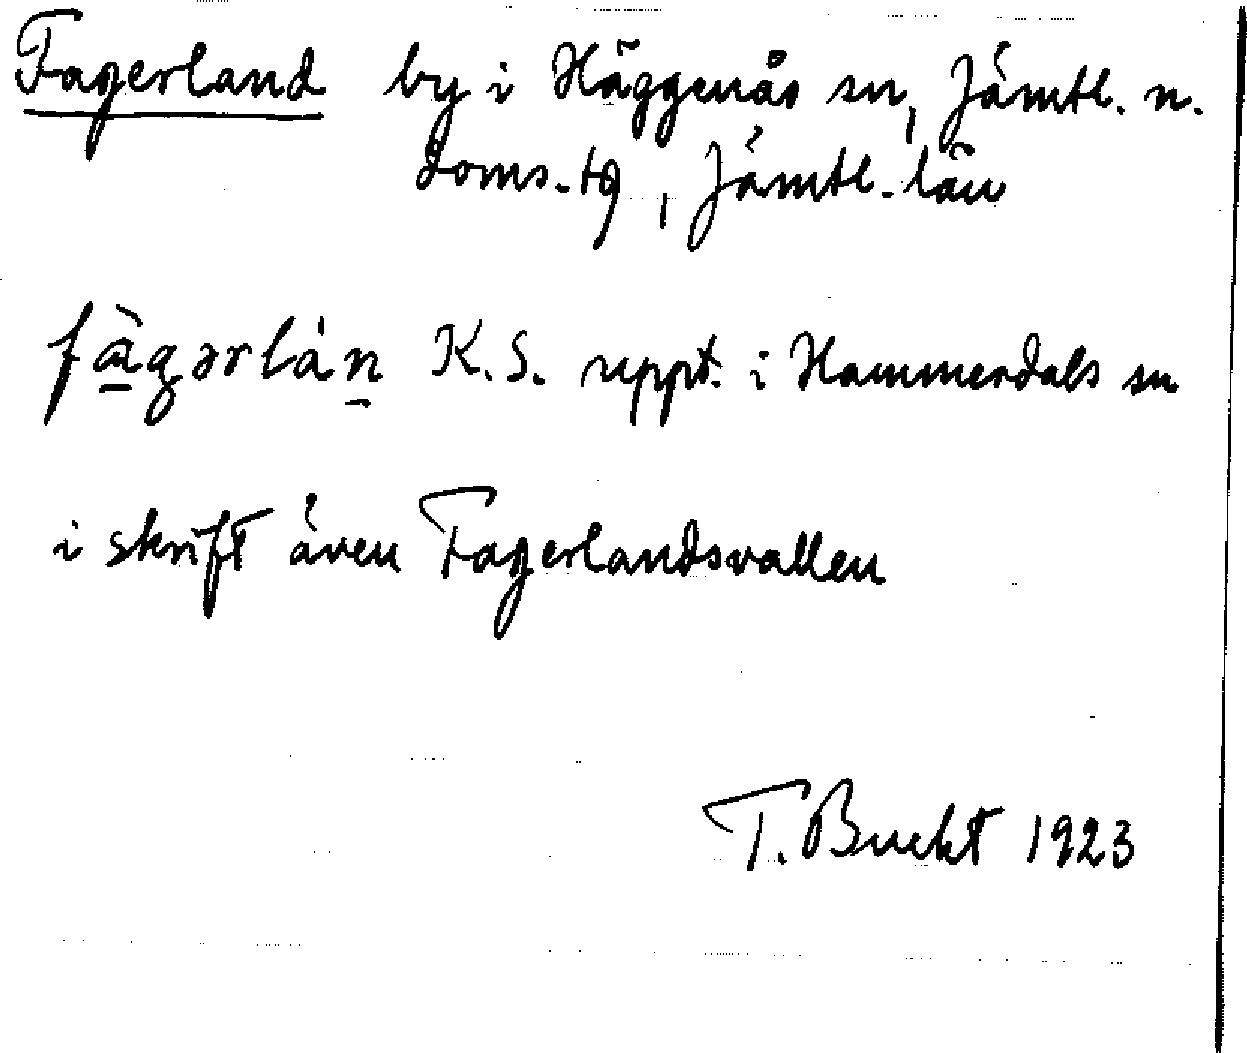 Fagerland by i Häggenås sn, Jämtl. n.
doms.tg, Jämtl. län
fà̱gərlán̠ K.S. uppt. i Hammerdals sn
i skrift även Fagerlandsvallen
T. Bucht 1923